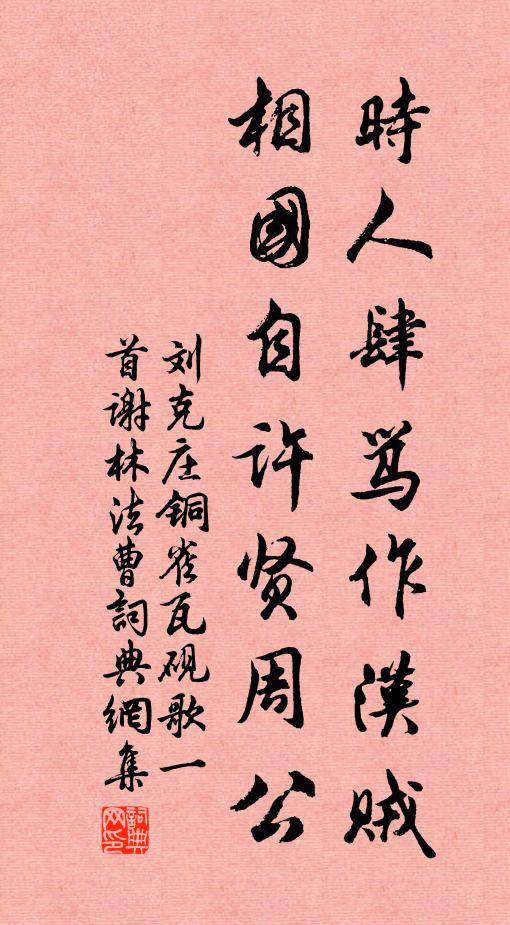 時人肆骂作漢贼
相國自许贤周公
刘克庄铜雀瓦砚歌一
首谢林法曹詞典網集
詞典网印